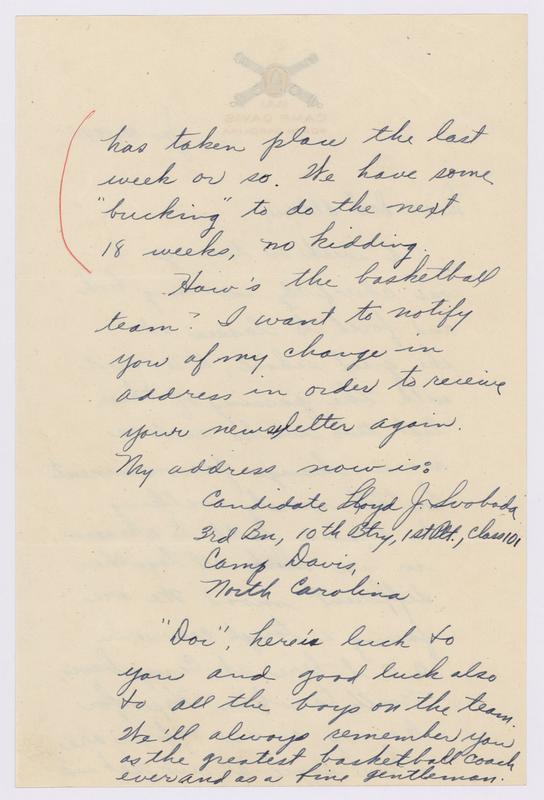 has taken place the last
week or so. We have some
"bucking" to do the next
18 weeks, no kidding.
How's the basketball
team? I want to notify
you of my change in
address in order to receive
your newsletter again.
My address now is:
Candidate Lloyd J. Svoboda
3rd Bn, 10th Btry, 1st Plt., Class 101
Camp Davis,
North Carolina
"Doc", here's luck to
you and good luck also
to all the boys on the team.
We'll always remember you
as the greatest basketball coach
ever and as a fine gentleman.